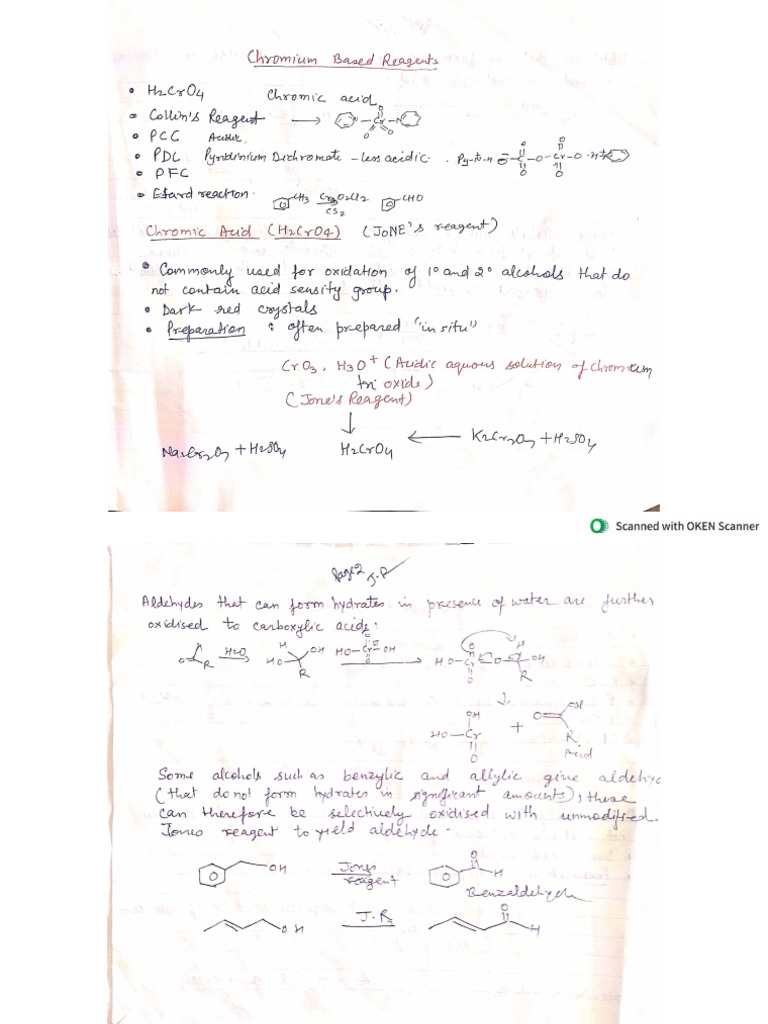 Chromium Based Reagents
• H2CrO4 Chromic acid
• Collin's Reagent →
• PCC Acidic
• PDC Pyridinium Dichromate - less acidic.
• PFC
• Etard reaction. CH3 CrO2Cl2 CS2 CHO
Chromic Acid (H2CrO4) (JONE's reagent)
• Commonly used for oxidation of 1° and 2° alcohols that do
not contain acid sensity group.
• Dark red crystals
• Preparation : often prepared "in situ"
CrO3, H3O+ (Acidic aqueous solution of chromium
tri oxide)
(Jone's Reagent)
↓
Na2Cr2O7 + H2SO4 H2CrO4 ← K2Cr2O7 + H2SO4
Scanned with OKEN Scanner
Page 2 J.R
Aldehydes that can form hydrates in presence of water are further
oxidised to carboxylic acids:
O R H2O → HO H OH R HO-Cr-OH → HO-Cr O OH R
↓
HO-Cr OH O + O OH R
Acid
Some alcohols such as benzylic and allylic give aldehyd
(that do not form hydrates in significant amounts), these
can therefore be selectively oxidised with unmodified
Jones reagent to yield aldehyde-
OH Jones reagent O H
Benzaldehyde
OH J.R. O H